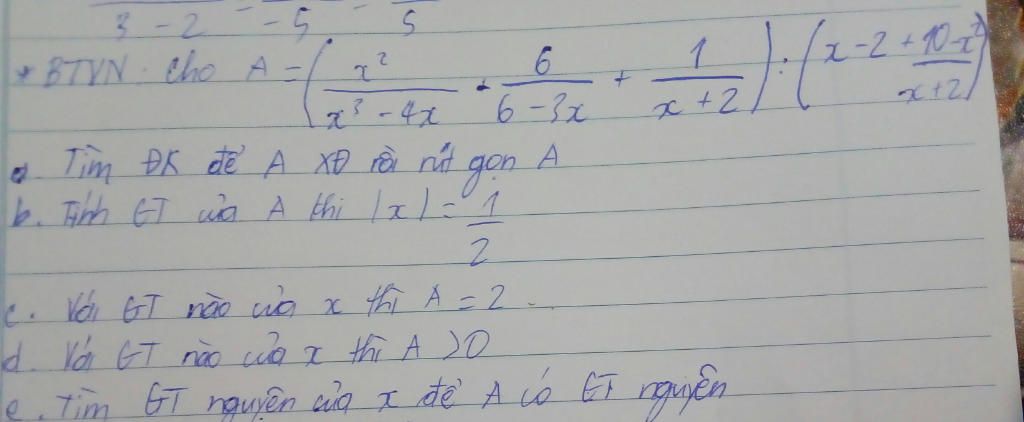 3 - 2 = -5 = 5
* BTVN. Cho A = ( x² / (x³ - 4x) + 6 / (6 - 3x) + 1 / (x + 2) ) : ( x - 2 + (10 - x²) / (x + 2) )
a. Tìm ĐK để A XĐ rồi rút gọn A
b. Tính GT của A khi |x| = 1/2
c. Với GT nào của x thì A = 2
d. Với GT nào của x thì A > 0
e. Tìm GT nguyên của x để A có GT nguyên